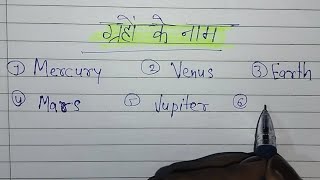 ग्रहों के नाम
① Mercury ② Venus ③ Earth
④ Mars ⑤ Jupiter ⑥